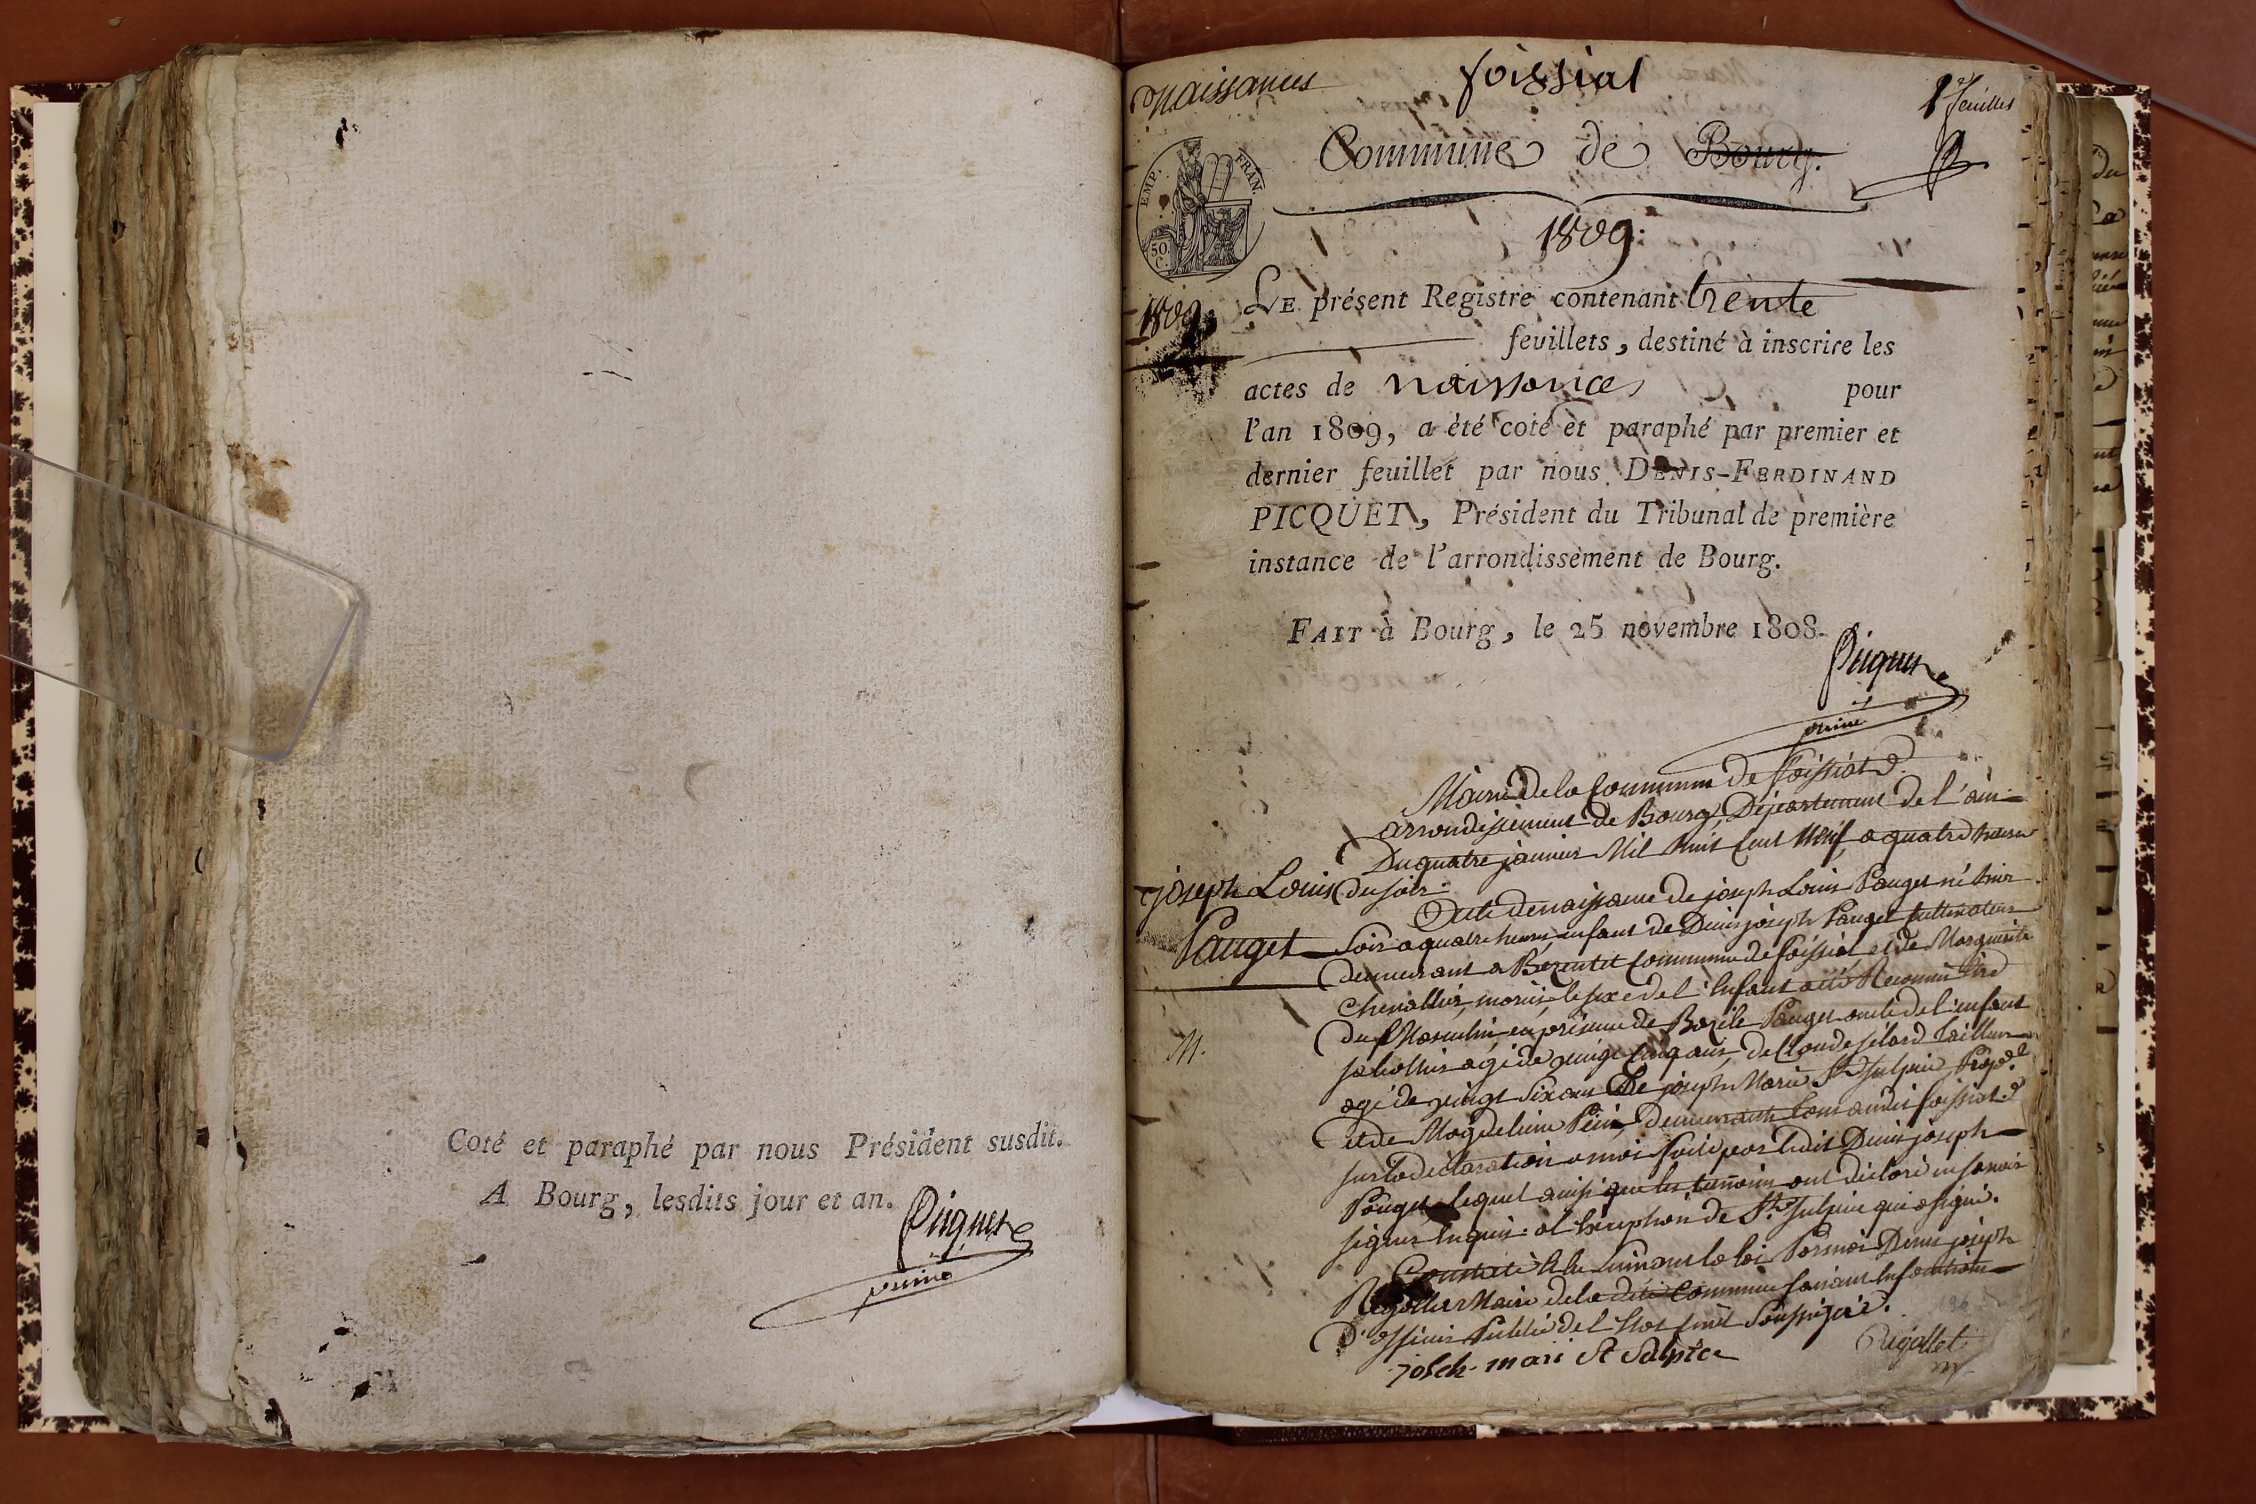 Coté et paraphé par nous Président susdit.
A Bourg, lesdits jour et an.
Picquet
Naissances
foissiat
1er feuillet
Commune de Bourg.
EMP. FRAN.
50 C.
1809.
1809
LE présent Registre contenant trente
feuillets, destiné à inscrire les
actes de naissances pour
l'an 1809, a été coté et paraphé par premier et
dernier feuillet par nous DENIS-FERDINAND
PICQUET, Président du Tribunal de première
instance de l'arrondissement de Bourg.
FAIT à Bourg, le 25 novembre 1808.
Picquet
Mairie de la Commune de foissiat
arrondissement de Bourg, Département de l'ain
Du quatre janvier Mil huit Cent Neuf, a quatre heures
du soir.
joseph Louis
Pauget
M.
Acte de naissance de joseph Louis Pauget né hier
soir a quatre heures, enfant de Denis joseph Pauget Cultivateur
demeurant a Bezentet Commune de foissiat et de Marguerite
Chevallier, mariés, le sexe de l'Enfant a été Reconnu être
du Masculin, en présence de Bazile Pauget oncle de l'enfant
agé de vingt Cinq ans, de Claude félard Tailleur
agé de vingt six ans De joseph Marie St Sulpice Prop.re
et de Magdeleine demeurants tous audit foissiat
sur la déclaration a moi faite par ledit Denis joseph
Pauget, lequel ainsi que les temoins ont déclaré ne savoir
signer Enquis. al'Exception de St Sulpice qui a signé.
Constaté suivant la loi Par moi Denis joseph
Rigollet Maire de la dite Commune faisant les fonctions
D'officier Public de l'Etat Civil Soussigné.
joseh mari St Sulpice
Rigollet